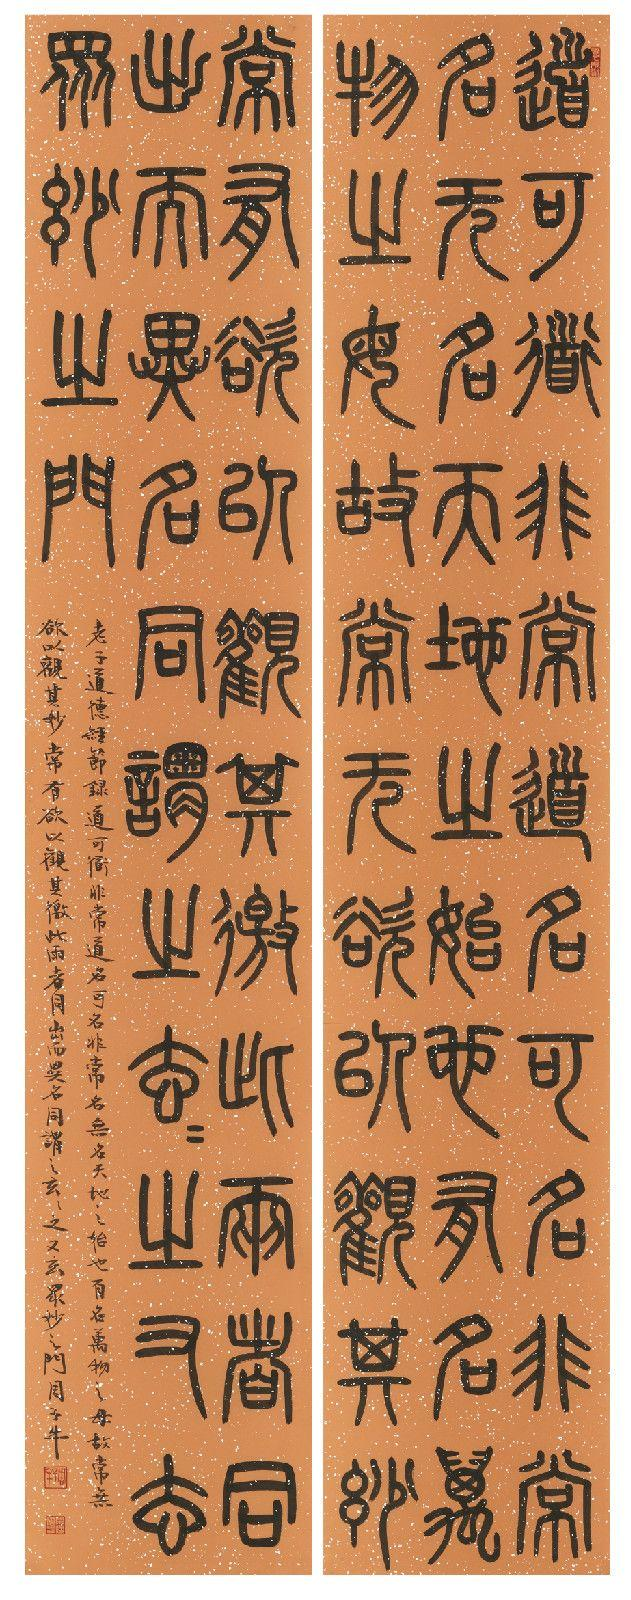 道可道非常道名可名非常
名无名天地之始也有名萬
物之母故常无欲以觀其妙
常有欲以觀其徼此兩者同
出而異名同謂之玄〻之又玄
眾妙之門
老子道德經節錄道可衜非常道名可名非常名無名天地之始也有名萬物之母故常無
欲以觀其妙常有欲以觀其徼此兩者同出而異名同謂之玄〻之又玄眾妙之門周